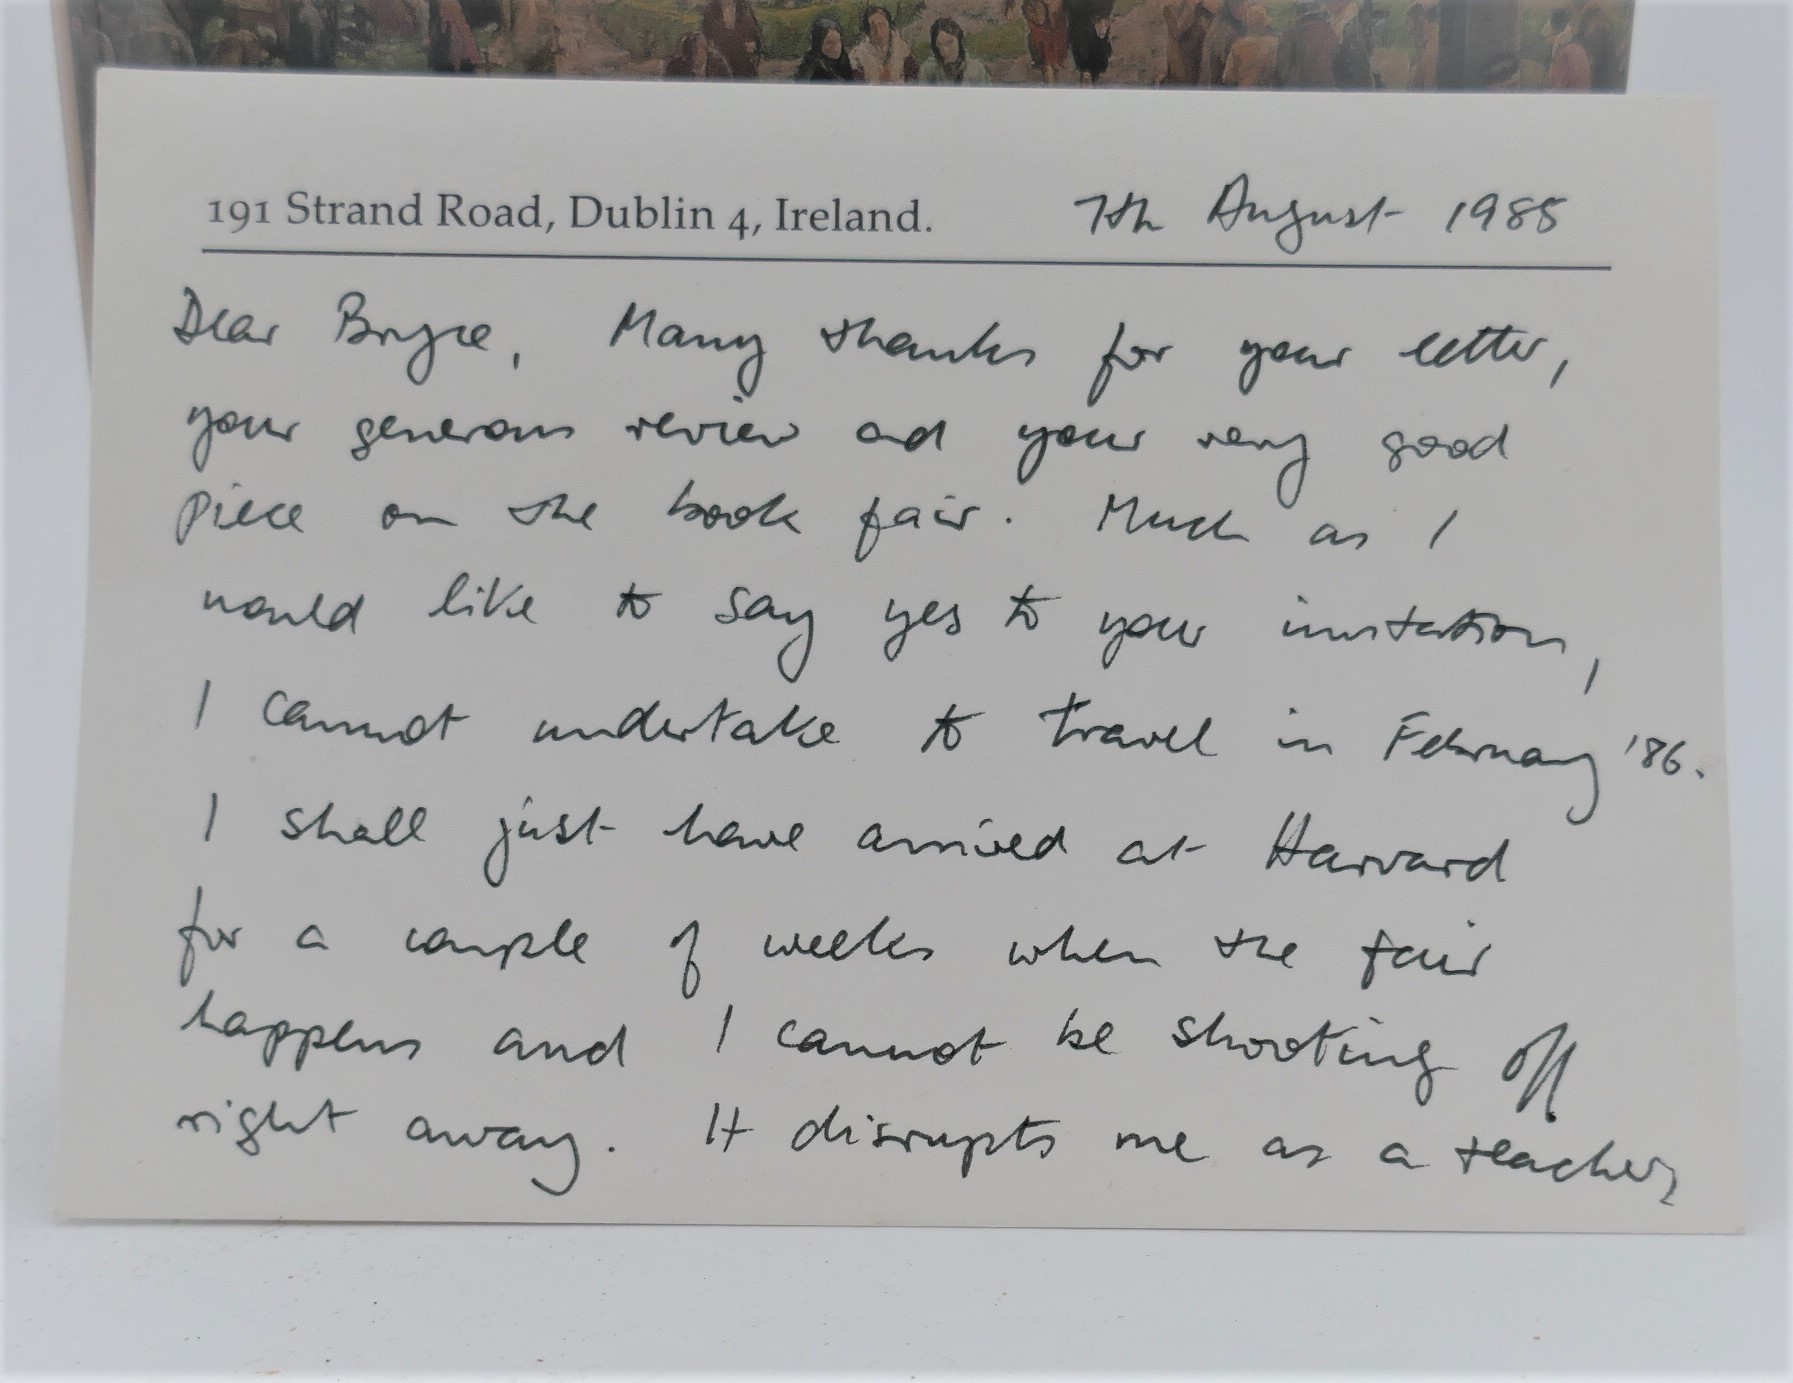 191 Strand Road, Dublin 4, Ireland. 7th August 1985
Dear Bryce, Many thanks for your letter,
your generous review and your very good
piece on the book fair. Much as I
would like to say yes to your invitation,
I cannot undertake to travel in February '86.
I shall just have arrived at Harvard
for a couple of weeks when the fair
happens and I cannot be shooting off
right away. It disrupts me as a teacher,